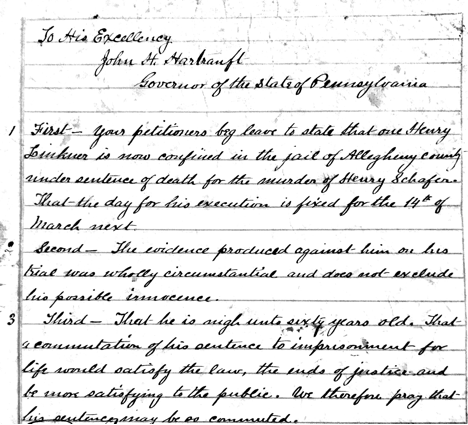 To His Excellency
John H. Hartranft
Governor of the State of Pennsylvania
1 First – Your petitioners beg leave to state that one Henry
Linkner is now confined in the jail of Allegheny county
under sentence of death for the murder of Henry Schafer.
That the day for his execution is fixed for the 14th of
March next.
2 Second – The evidence produced against him on his
trial was wholly circumstantial and does not exclude
his possible innocence.
3 Third – That he is nigh unto sixty years old. That
a commutation of his sentence to imprisonment for
life would satisfy the law, the ends of justice and
be more satisfying to the public. We therefore pray that
his sentence may be so commuted.